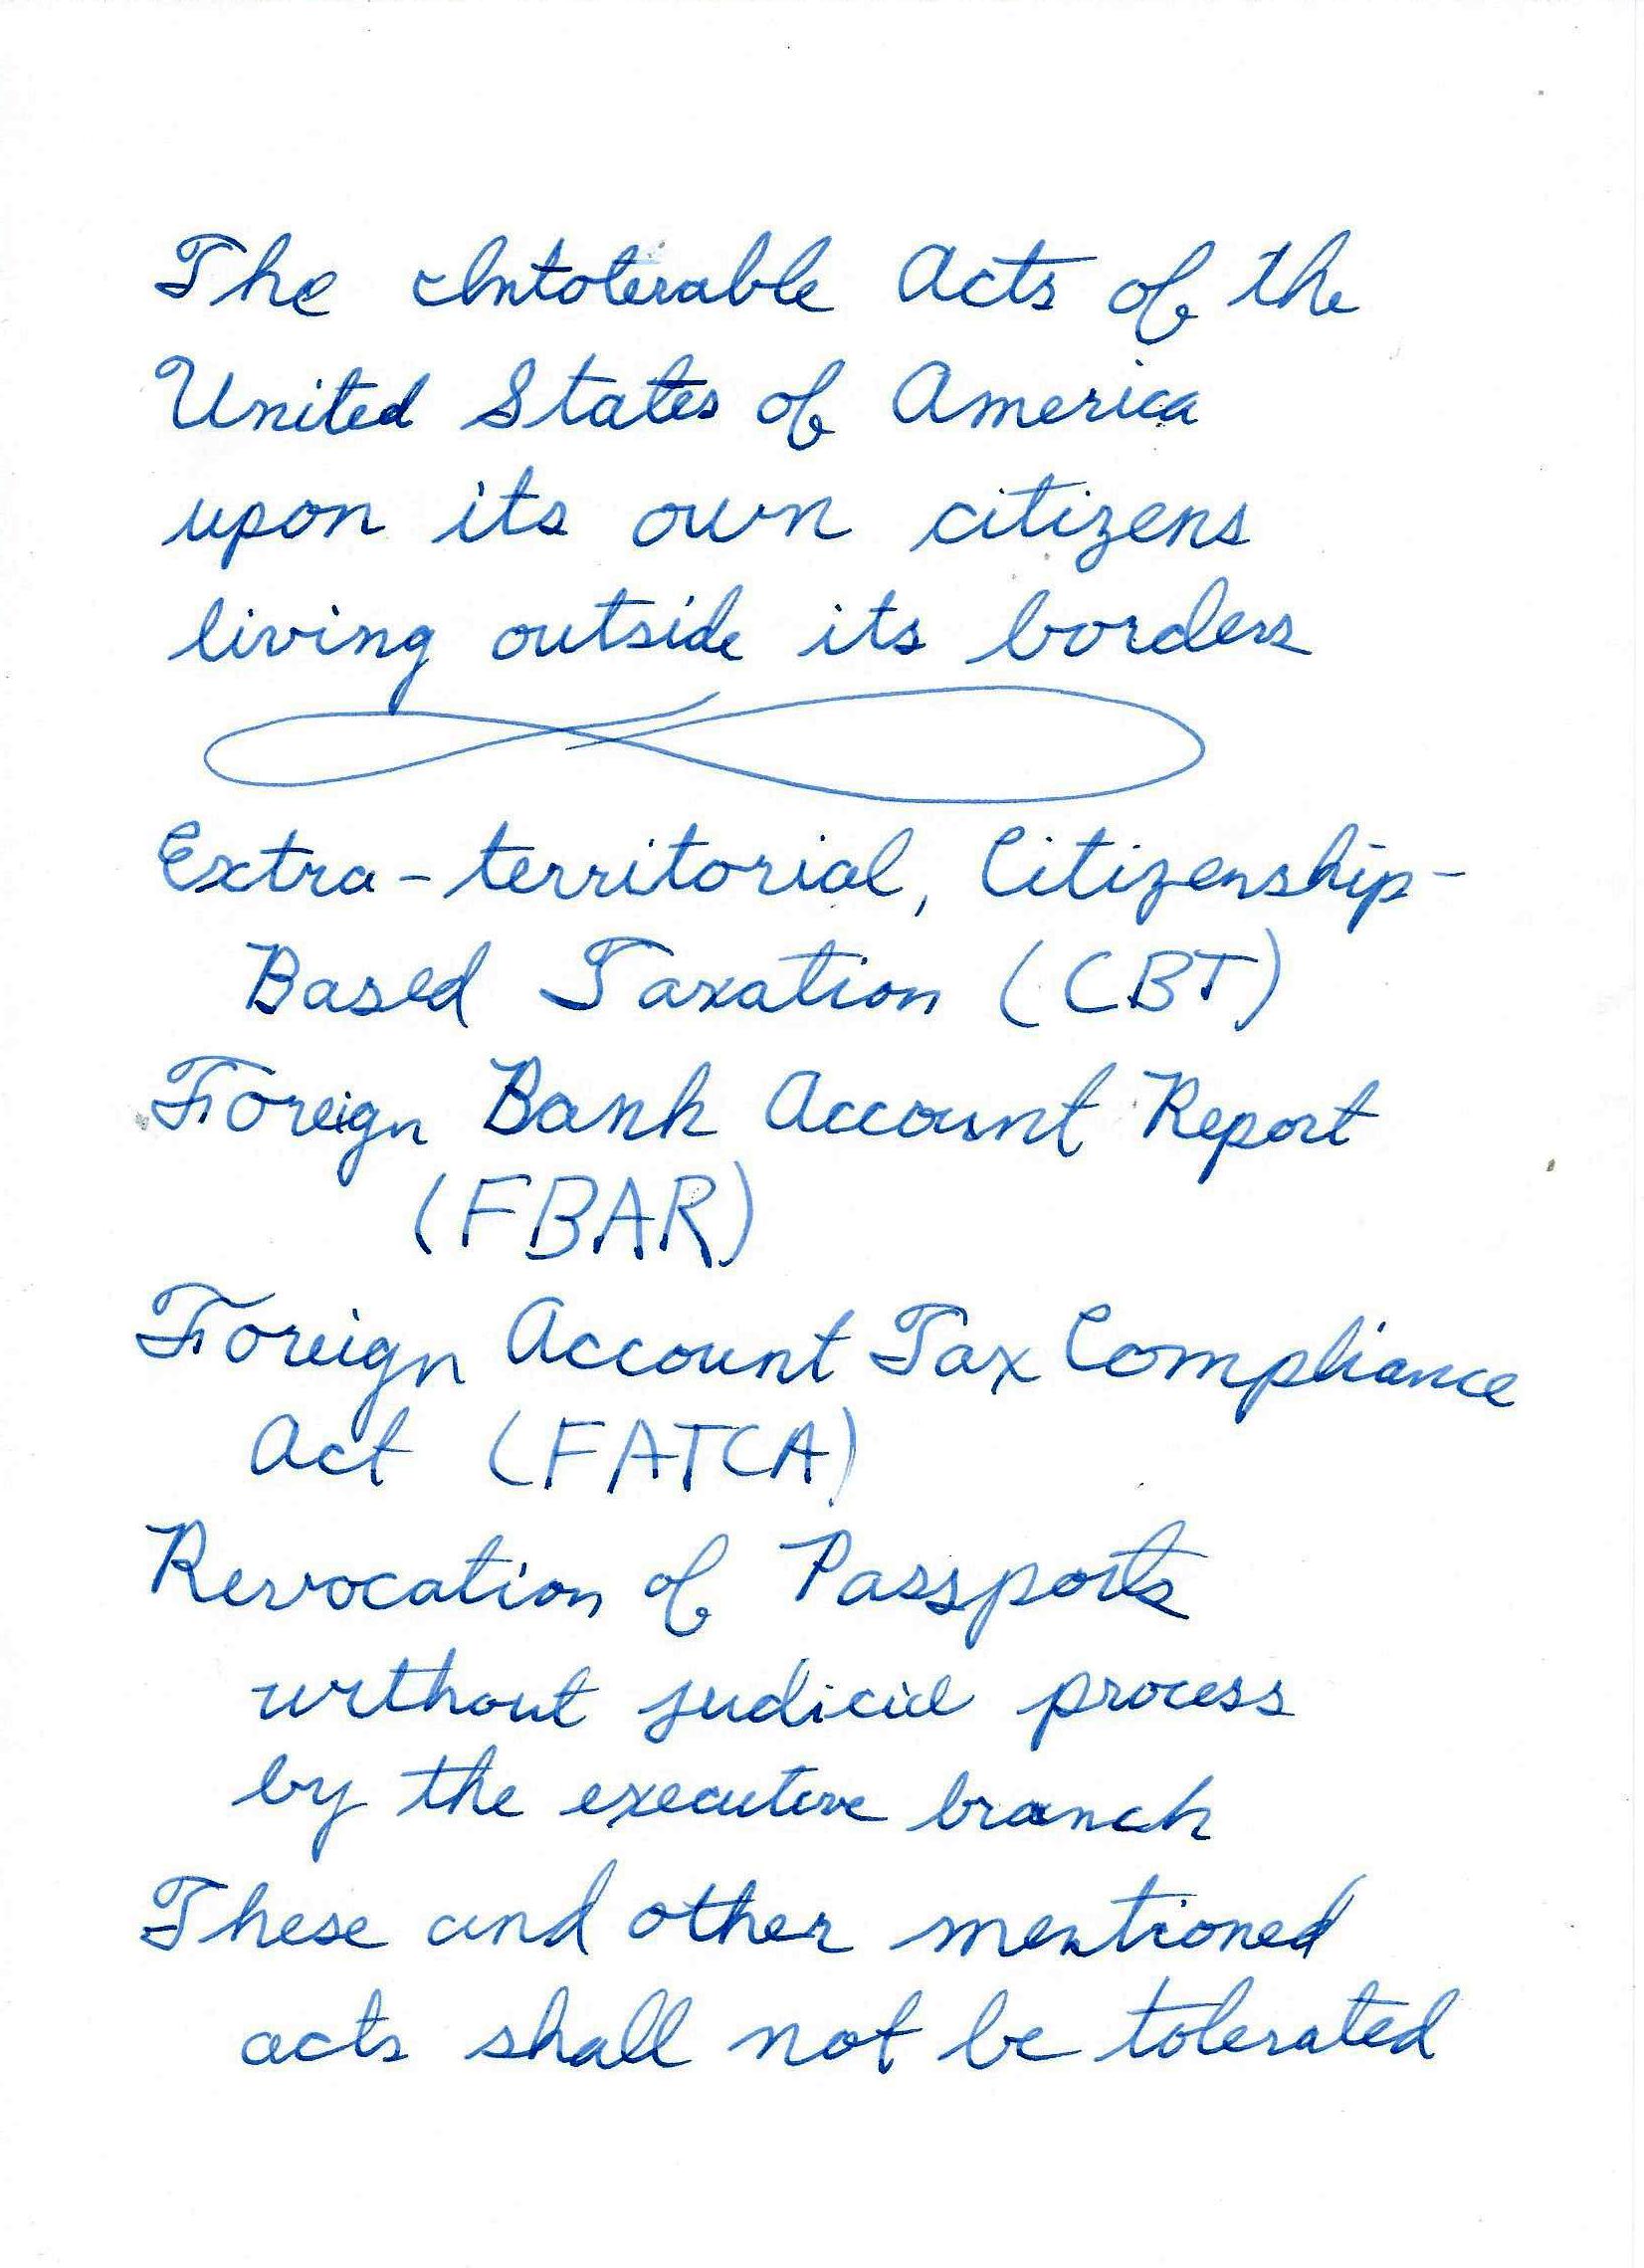 The Intolerable Acts of the
United States of America
upon its own citizens
living outside its borders
Extra-territorial, Citizenship-
Based Taxation (CBT)
Foreign Bank Account Report
(FBAR)
Foreign Account Tax Compliance
Act (FATCA)
Revocation of Passports
without judicial process
by the executive branch
These and other mentioned
acts shall not be tolerated